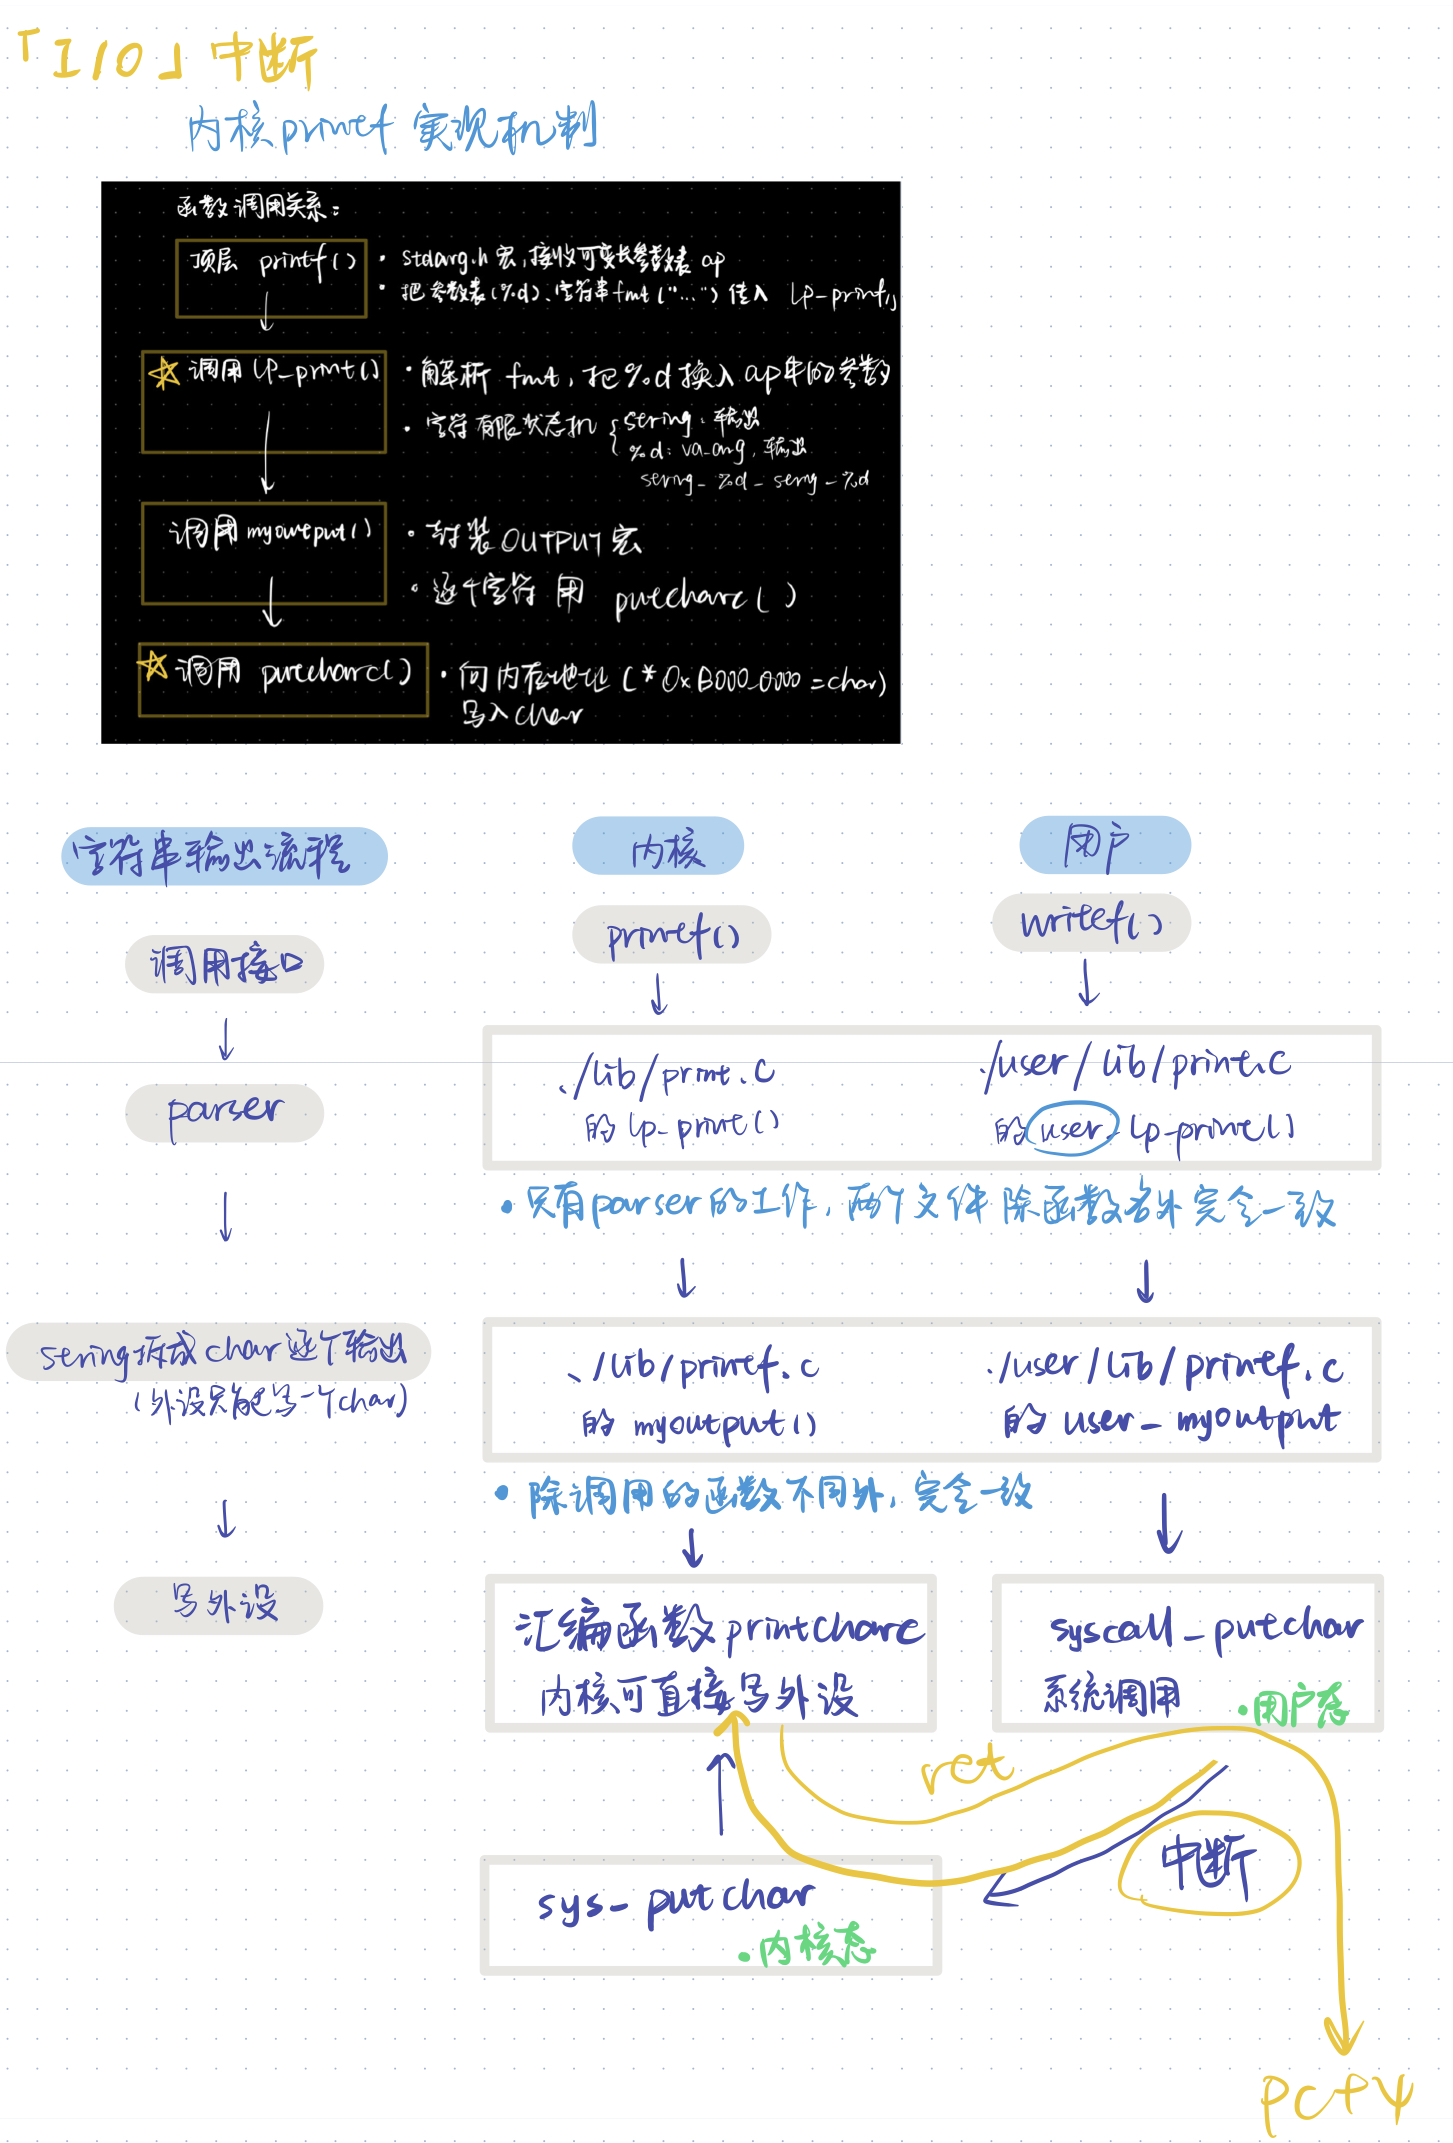 「I/O」中断
内核printf 实现机制
函数调用关系：
顶层 printf()
· stdarg.h 宏，接收可变长参数表 ap
· 把参数表(%d)、字符串fmt("...")传入 lp_print()
☆ 调用 lp_print()
· 解析 fmt，把%d换入ap中的参数
· 字符有限状态机 { string：输出
%d：va_arg，输出
string_%d_string_%d
调用 myoutput()
· 封装OUTPUT宏
· 逐个字符 用 putcharc()
☆ 调用 putcharc()
· 向内存地址 (*0xB000_0000=char)
写入char
字符串输出流程
内核
用户
调用接口
printf()
writef()
parser
./lib/print.c
的 lp_print()
./user/lib/print.c
的 user_lp_print()
· 只有parser的工作，两个文件 除函数名外 完全一致
string拆成char逐个输出
(外设只能写一个char)
./lib/printf.c
的 myoutput()
./user/lib/printf.c
的 user_myoutput
· 除调用的函数不同外，完全一致
写外设
汇编函数printcharc
内核可直接写外设
syscall_putchar
系统调用
·用户态
ret
中断
sys_putchar
·内核态
PC+4